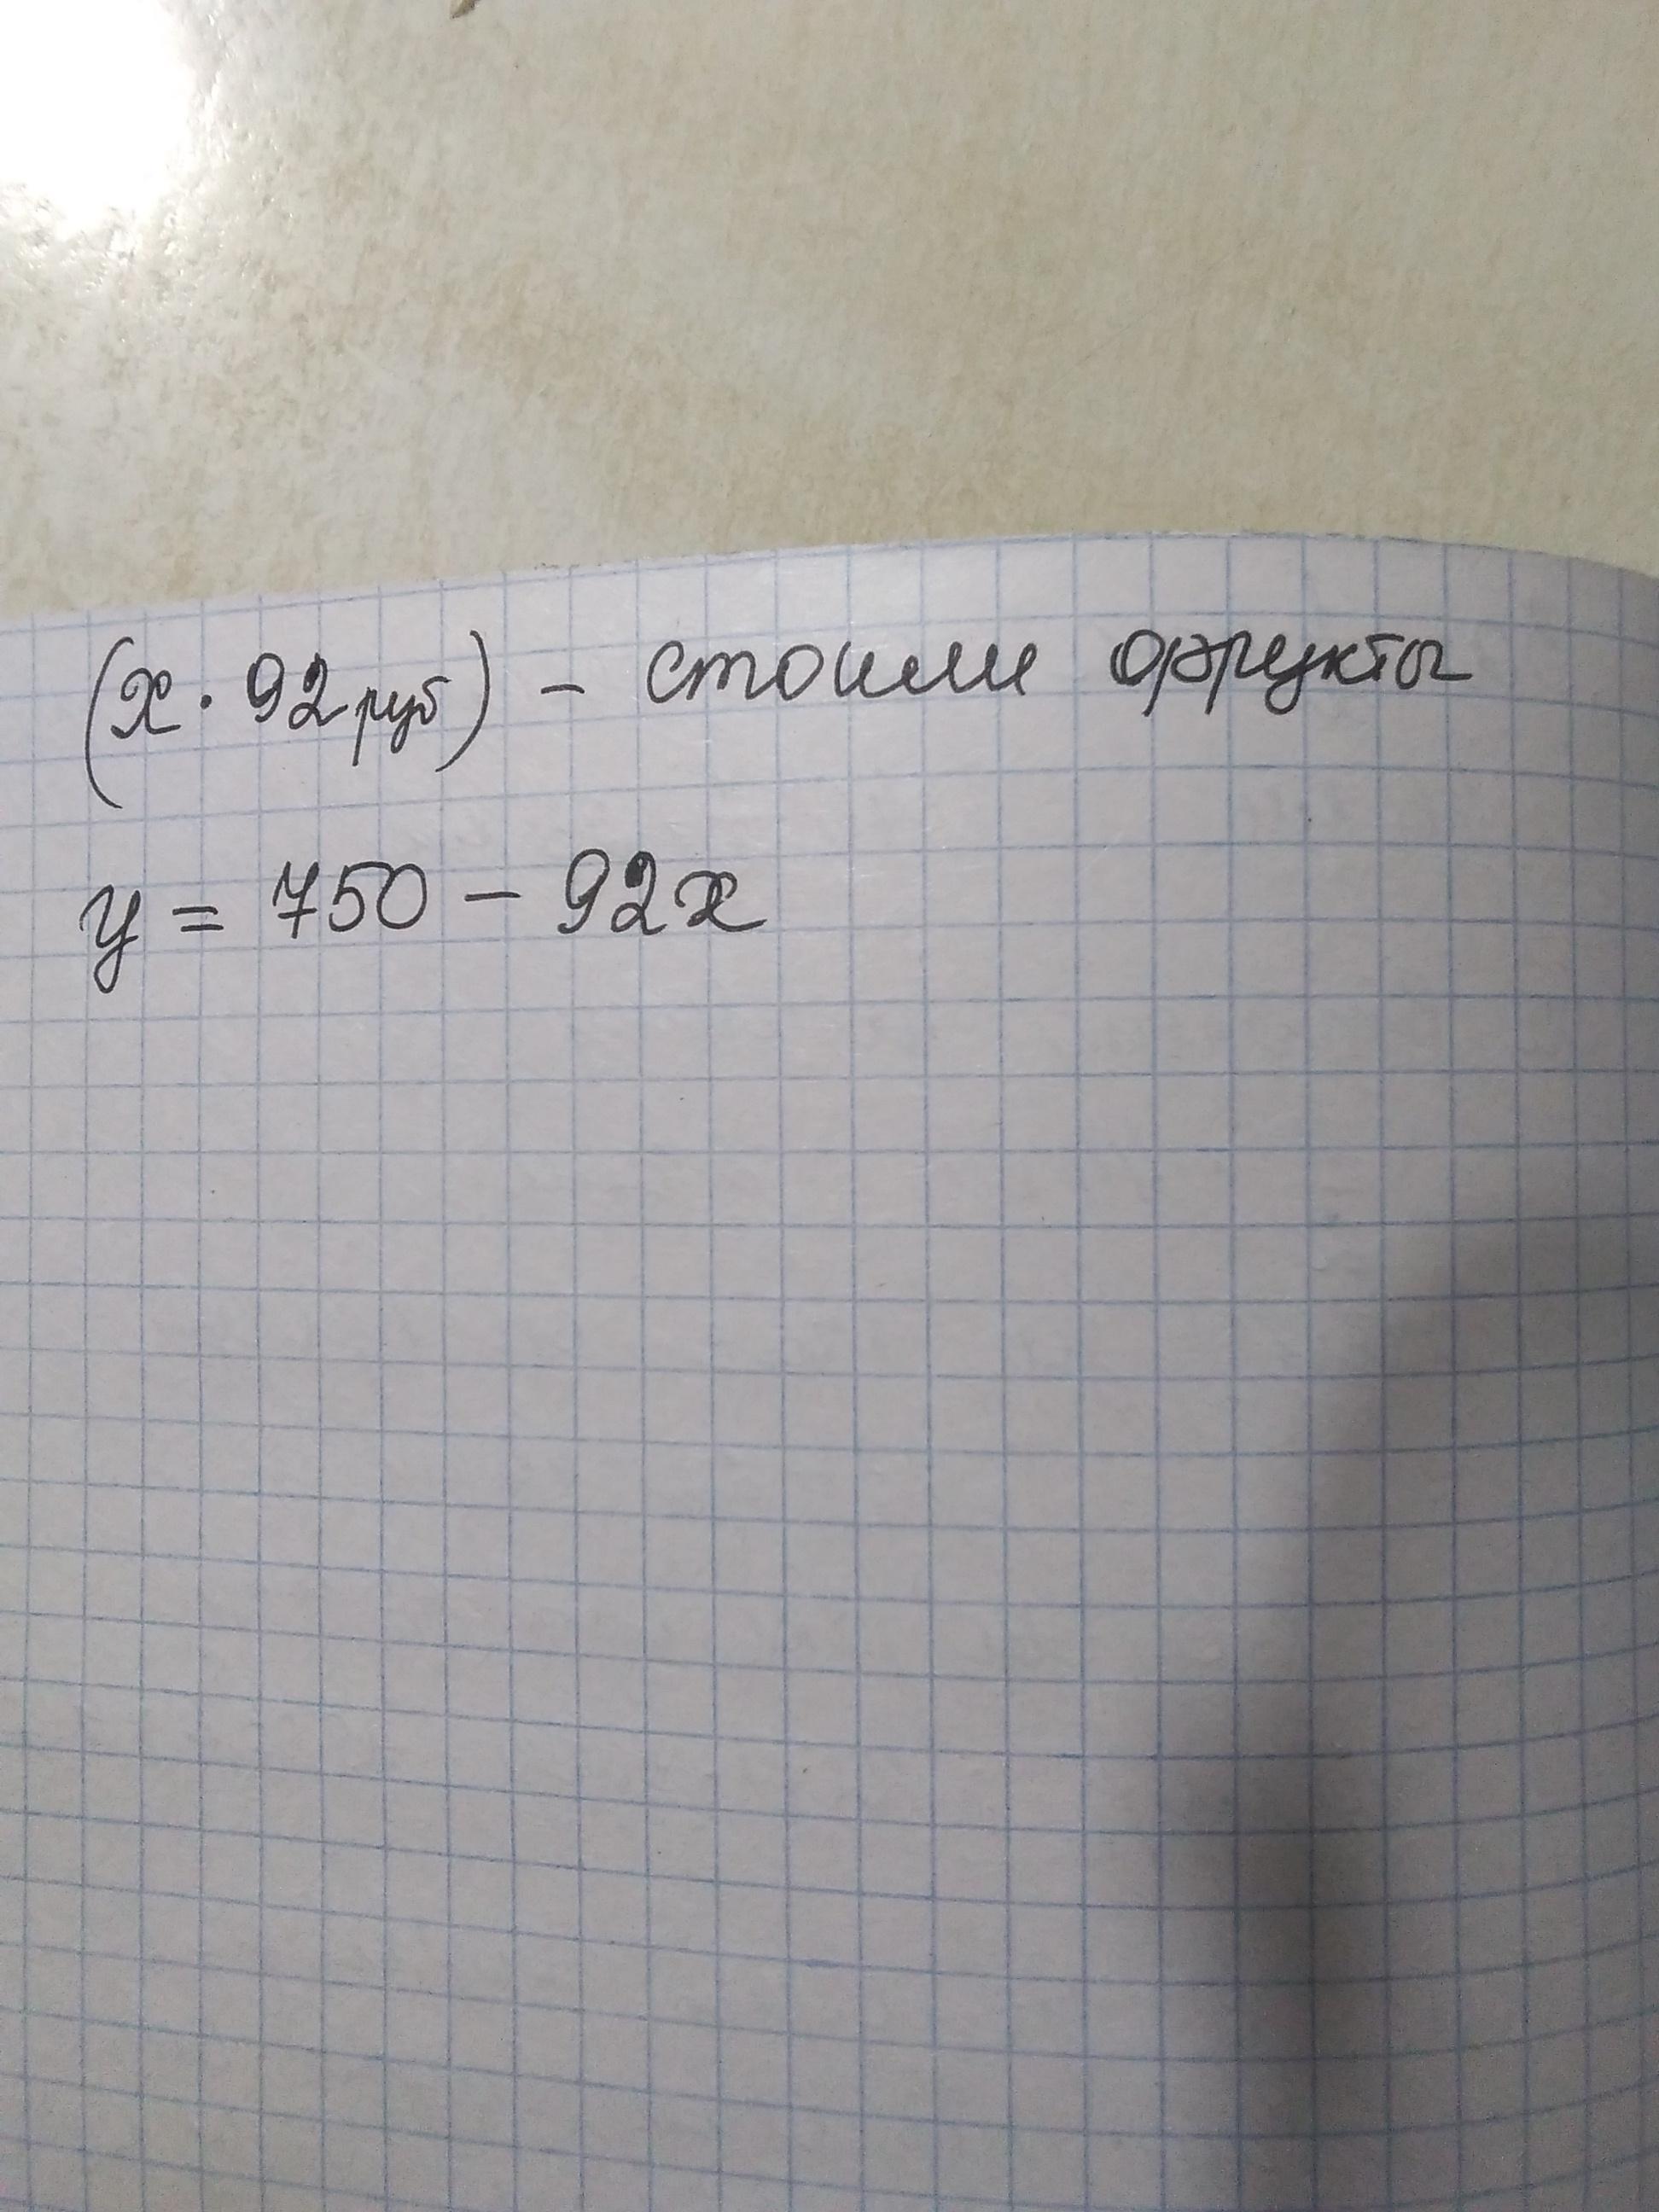 (x · 92 руб) - стоили фрукты
y = 750 - 92x